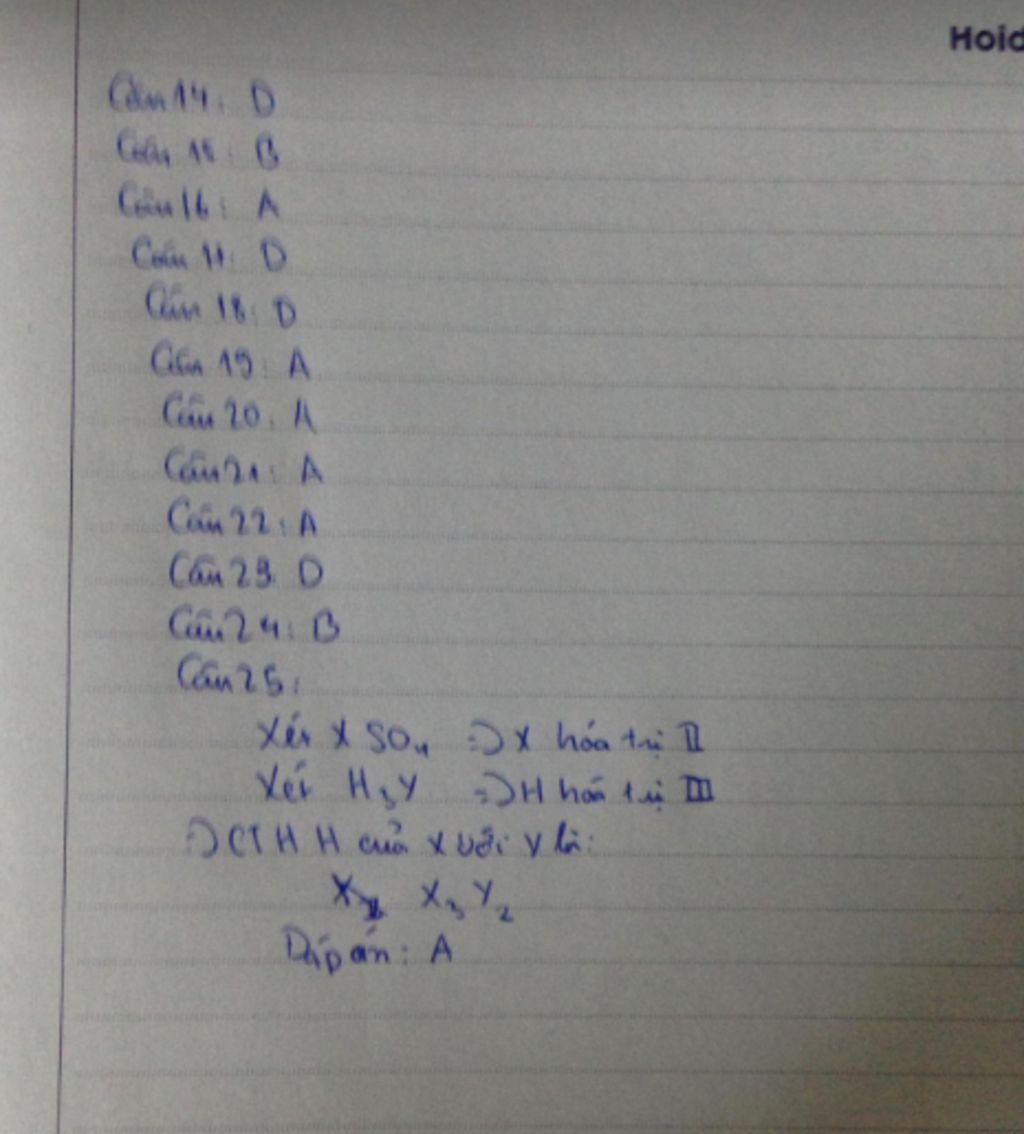 Hoid
Câu 14: D
Câu 15: B
Câu 16: A
Câu 17: D
Câu 18: D
Câu 19: A
Câu 20: A
Câu 21: A
Câu 22: A
Câu 23: D
Câu 24: B
Câu 25:
Xét X SO₄ => X hóa trị II
Xét H₃Y => H hóa trị III
=> CTHH của X với Y là:
X₃Y₂
Đáp án: A